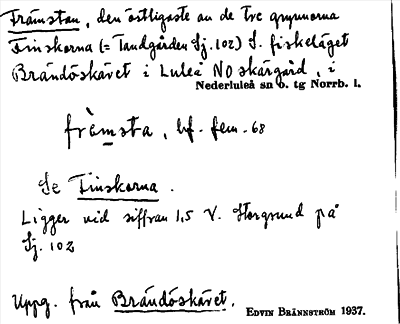 Främstan, den östligaste av de tre grynnorna
Finskorna (= Tandgården Sj. 102) S. fiskeläget
Brändöskäret i Luleå NO skärgård, i
Nederluleå sn o. tg Norrb. l.
främsta, bf. fem. 68
Se Finskorna.
Ligger vid siffran 1,5 V. Storgrund på
Sj. 102
Uppg. från Brändöskäret.
EDVIN BRÄNNSTRÖM 1937.